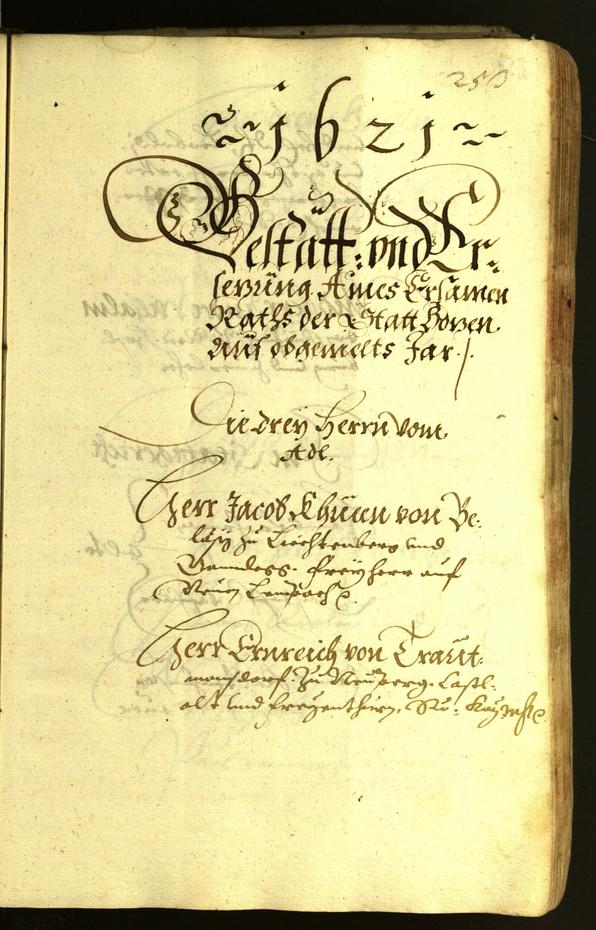 253
~ 1621 ~
Bestätt: vnd Er-
sezúng Aines Ersamen
Raths der Statt Bozen.
aúf obgemelts Jar ./.
Die drey Herrn vom
Adl.
Herr Jacob Khúen von Be-
lasy zú Liechtenberg vnd
freyherr aúf
Neúen
Herr Ernreich von Traút-
manstorf. Zú Neúperg.
vnd freyenthúrn.